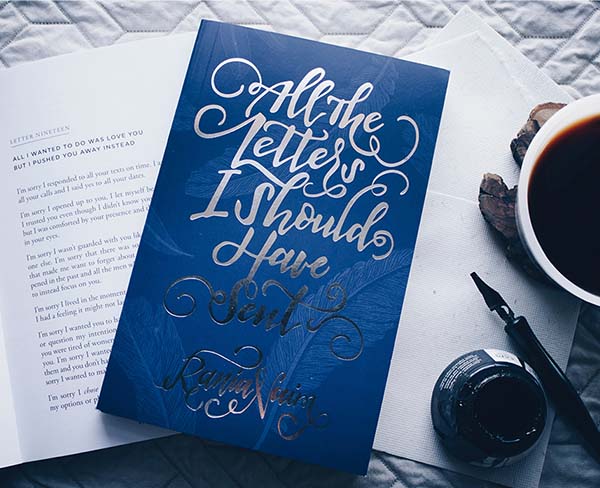 All The
Letters
I Should
Have
Sent
Rania Naim
LETTER NINETEEN
ALL I WANTED TO DO WAS LOVE YOU
BUT I PUSHED YOU AWAY INSTEAD
I'm sorry I responded to all your texts on time. I
all your calls and I said yes to all your dates.
I'm sorry I opened up to you, I let myself be
I trusted you even though I didn't know you
but I was comforted by your presence and I
in your eyes.
I'm sorry I wasn't guarded with you like
one else. I'm sorry that there was so
that made me want to forget about
pened in the past and all the men w
to instead focus on you.
I'm sorry I lived in the moment
I had a feeling it might not la
I'm sorry I wanted you to b
or question my intention
you were tired of wonder
you. I'm sorry I wanted
them and you don't ha
sorry I wanted to ma
I'm sorry I chose
my options or p